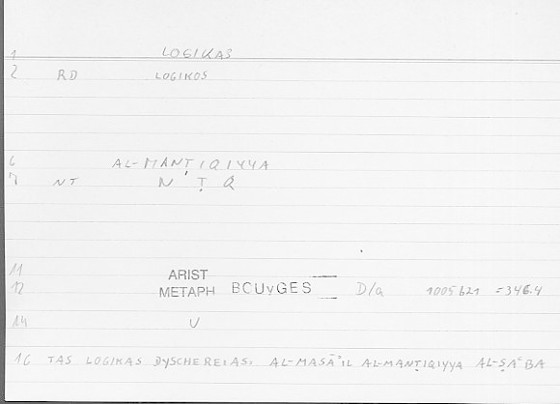 1 LOGIKAS
2 RD LOGIKOS
6 AL-MANṬIQIYYA
7 NT N Ṭ Q
11 ARIST
12 METAPH BOUYGES D/a 1005.b21 =346.4
14 U
16 TAS LOGIKAS DYSCHEREIAS: AL-MASĀʾIL AL-MANṬIQIYYA AL-ṢAʿBA